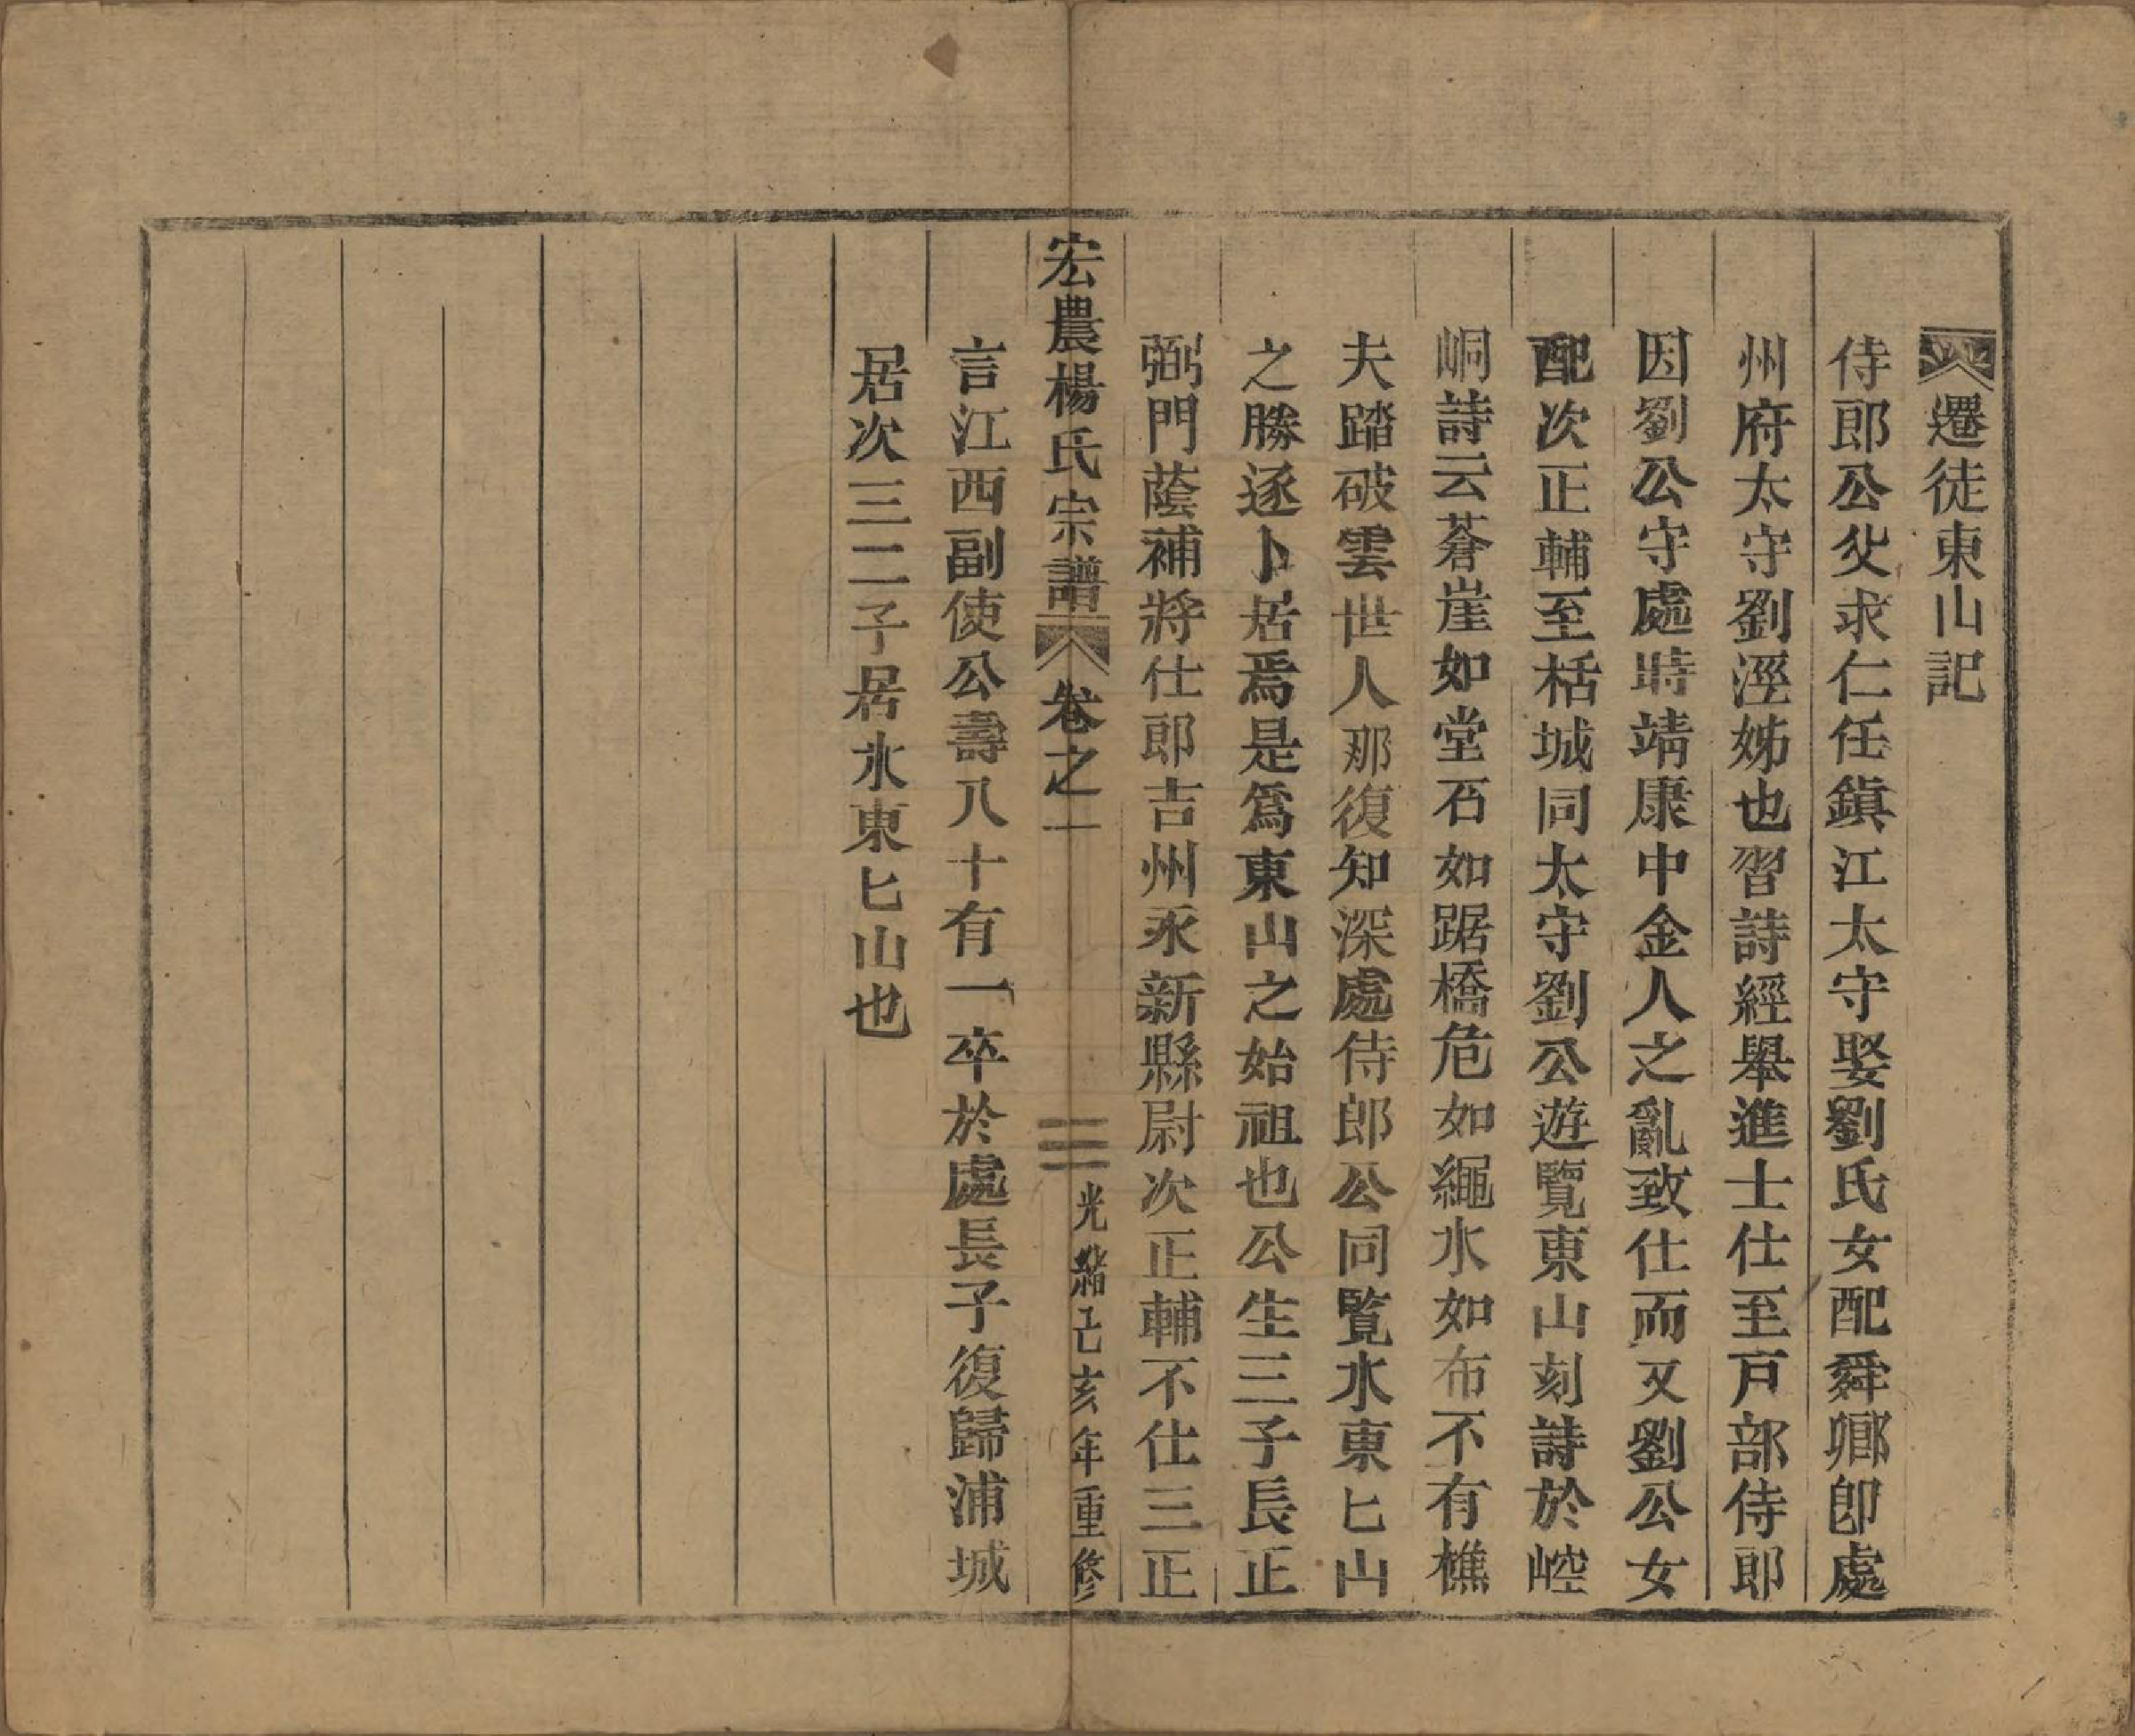 遷徒東山記
侍郎公父求仁任鎮江太守娶劉氏女配舜鄉卽處
州府太守劉涇姊也習詩經舉進士仕至戸部侍郎
因劉公守處時靖康中金人之亂致仕而又劉公女
配次正輔至栝城同太守劉公遊覽東山刻詩於崆
峒詩云蒼崖如堂石如踞橋危如繩水如布不有樵
夫踏破雲世人那復知深處侍郎公同覽水東匕山
之勝逐卜居焉是爲東山之始祖也公生三子長正
弼門蔭補將仕郎吉州永新縣尉次正輔不仕三正
宏農楊氏宗譜 卷之一 三 光緒己亥年重修
言江西副使公壽八十有一卒於處長子復歸浦城
居次三二子居水東匕山也